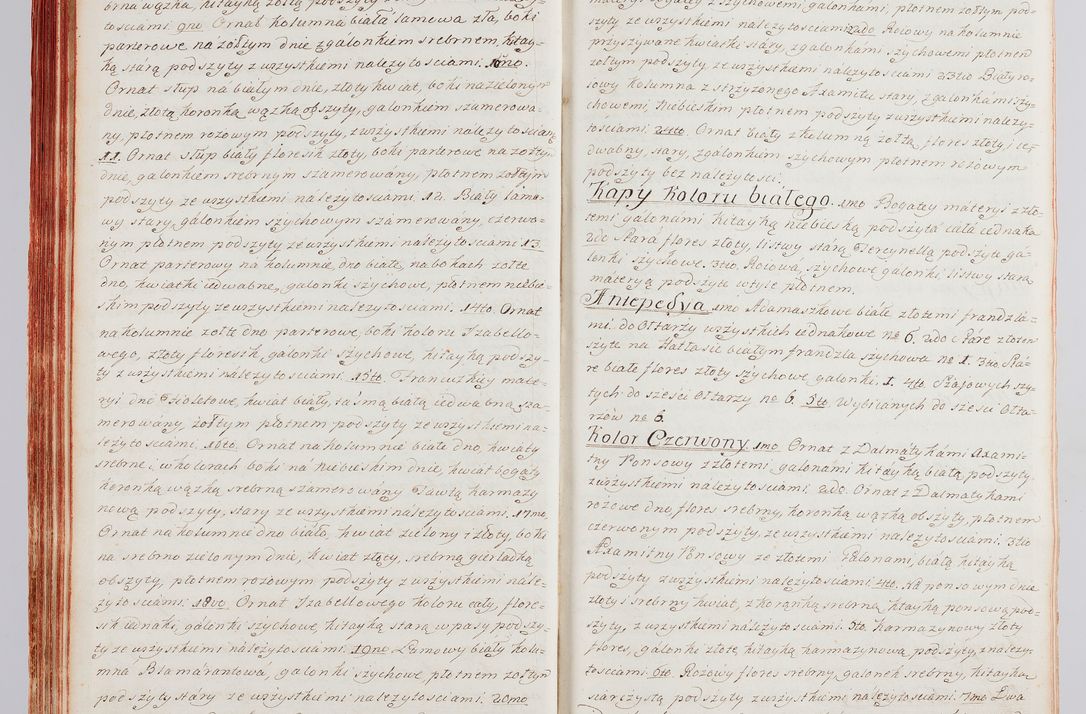 brna wązka, kitayką zołtą podszyty
tosciami. 9no Ornat kolumna biała lamowa zła, boki
parterowe na zołtym dnie z galonkiem srebrnem, kitay-
ką starą podszyty z wszystkiemi nalezytosciami. 10mo.
Ornat słup na białym dnie, złoty kwiat, boki na zielonym
dnie, złotą koronką wązką obszyty, galonkiem szamerowa-
ny, płotnem rozowym podszyty, z wszystkiemi nalezytosciami
11. Ornat słup biały floresik złoty, boki parterowe na zołtym
dnie, galonkiem srebrnym szamerowany, płotnem zołtym
podszyty ze wszystkemi nalezytosciami. 12. Biały lamo-
wy stary, galonkiem szychowym szamerowany, czerwo-
nym płotnem podszyty ze wszystkiemi nalezytosciami. 13
Ornat parterowy na kolumnie dno białe, na bokach zołte
dno, kwiatki iedwabne, galonki szychowe, płotnem niebie-
skim podszyty ze wszystkiemi nalezytosciami. 14to Ornat
na kolumnie zołte dno parterowe, boki koloru Izabello-
wego, złoty floresik, galonki szychowe, kitayką podszy-
ty z wszystkiemi nalezytosciami. 15to. Francuzkiey mate-
ryi dno Fioletowe, kwiat biały, taśmą białą iedwabną sza-
merowany, zołtym płotnem podszyty ze wszystkiemi na-
lezytosciami. 16to. Ornat na kolumnie białe dno, kwiaty
srebrne i w kolorach boki na niebieskim dnie, kwiat bogaty
koronką wązką srebrną szamerowany Tawtą karmazy
nową podszyty, stary ze wszystkiemi nalezytosciami. 17mo
Ornat na kolumnie dno białe, kwiat zielony i złoty, boki
na srebrno zielonym dnie, kwiat złoty, srebrną gierladką
obszyty, płotnem rozowym podszyty z wszystkiemi nale-
zytosciami. 18vo. Ornat Izabellowego koloru cały, flore-
sik iednaki, galonki szychowe, kitayką starą w pasy podszy-
ty ze wszystkiemi nalezytosciami. 19no Lamowy biały kolu-
mna Blamarantowa, galonki szychowe, płotnem zołtym
podszyty stary ze wszystkiemi nalezytosciami. 20mo
materyi bogatey z szychowemi galonkami, płotnem zołtym pod-
szyty ze wszystkiemi nalezytosciami. 22do. Rozowy na kolumnie
przyszywane kwiatki stary, z galonkami szychowemi płotnem
zołtym podszyty ze wszystkiemi nalezytosciami 23tio Biały ro-
zowy kolumna z strzyzonego Axamitu stary, z galonkami szy-
chowemi Niebieskim płotnem podszyty z wszystkiemi nalezy-
tosciami. 24to. Ornat biały z kolumną zołtą, flores złoty, ie-
dwabny, stary, z galonkiem szychowym płotnem rozowym
podszyty bez nalezytosci.
Kapy Koloru białego. 1mo Bogatey materyi z zło-
temi galonami kitayką niebieską podszyta cała iednaka
2do Stara flores złoty, listwy starą Tercynellą podszyte ga-
lonki szychowe. 3tio. Rozowa, szychowe galonki listwy starą
materyą podszyte w tyle płotnem.
Antepedya 1mo Adamaszkowe białe złotemi frandzla-
mi do Ołtarzy wszystkich iednakowe no 6. 2do Pare złotem
szyte na Hatłasie białym frandzla szychowa no 1. 3tio Sta-
re białe flores złoty szychowe galonki. 1. 4to Stajowych szy-
tych do szesci Ołtarzy no 6. 5to Wybiianych do szesci Ołta-
rzów no 6.
Kolor Czerwony. 1mo. Ornat z Dalmatykami Axami-
tny Ponsowy z złotemi galonami kitayką białą podszyty
z wszystkiemi nalezytosciami. 2do. Ornat z Dalmatykami
rozowe dno, flores srebrny, koronką wązką obszyty, płotnem
czerwonym podszyty, ze wszystkiemi nalezytosciami. 3tio
Axamitny Ponsowy ze złotemi Galonami, białą kitayką
podszyty z wszystkiemi nalezytosciami. 4to. Na ponsowym dnie
złoty i srebrny kwiat, z koronką srebrną, kitayką ponsową pod-
szyty, z wszystkiemi nalezytosciami. 5to. Karmazynowy złoty
flores, galonki złote kitayką karmazynową podszyty, z nalezy-
tosciami. 6to. Rozowy flores srebrny, galonek srebrny, kitayką
siarczystą podszyty z wszystkiemi nalezytosciami. 7mo Dwa